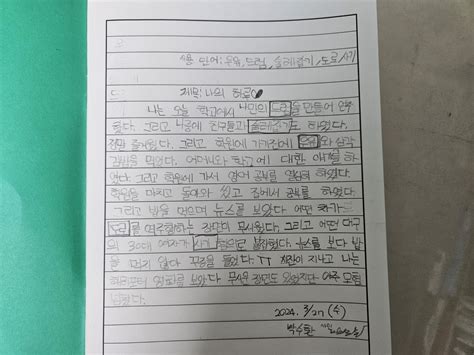 사용 단어: 우유, 드럼, 술래잡기, 도로, 사기
제목: 나의 하루
나는 오늘 학교에서 나만의 드럼을 만들어 연주
했다. 그리고 나중에 친구들과 술래잡기도 하였다.
정말 즐거웠다. 그리고 학원에 가기전에 우유와 삼각
김밥을 먹었다. 어머니와 학교에 대한 얘기를 하
였다. 그리고 학원에 가서 영어 공부를 열심히 하였다.
학원을 마치고 돌아와 씻고 집에서 공부를 하였다.
그리고 밥을 먹으며 뉴스를 보았다. 어떤 차가
도로를 역주행하는 장면이 무서웠다. 그리고 어떤 대구
의 30대 여자가 사기
뉴스를 보다 밥
을 먹지 않다 꾸중을 들었다. TT
영화를 보았다. 무서운 장면도 있었지만 아주
2024. 3/27 (수)
박수환